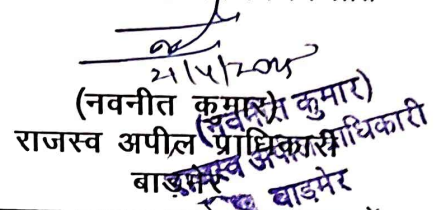 21/5/2025
(नवनीत कुमार)
राजस्व अपील प्राधिकारी
बाड़मेर
(नवनीत कुमार)
राजस्व अपील प्राधिकारी
बाड़मेर